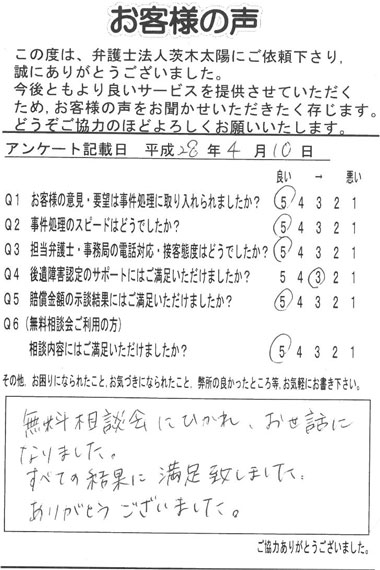 お客様の声
この度は、弁護士法人茨木太陽にご依頼下さり、
誠にありがとうございました。
今後ともより良いサービスを提供させていただく
ため、お客様の声をお聞かせいただきたく存じます。
どうぞご協力のほどよろしくお願いいたします。
アンケート記載日 平成28年4月10日
良い → 悪い
Q1 お客様の意見・要望は事件処理に取り入れられましたか? 5 4 3 2 1
Q2 事件処理のスピードはどうでしたか? 5 4 3 2 1
Q3 担当弁護士・事務局の電話対応・接客態度はどうでしたか? 5 4 3 2 1
Q4 後遺障害認定のサポートにはご満足いただけましたか? 5 4 3 2 1
Q5 賠償金額の示談結果にはご満足いただけましたか? 5 4 3 2 1
Q6 (無料相談会ご利用の方)
相談内容にはご満足いただけましたか? 5 4 3 2 1
その他、お困りになられたこと、お気づきになられたこと、弊所の良かったところ等、お気軽にお書き下さい。
無料相談会にひかれ、お世話に
なりました。
すべての結果に満足致しました。
ありがとうございました。
ご協力ありがとうございました。